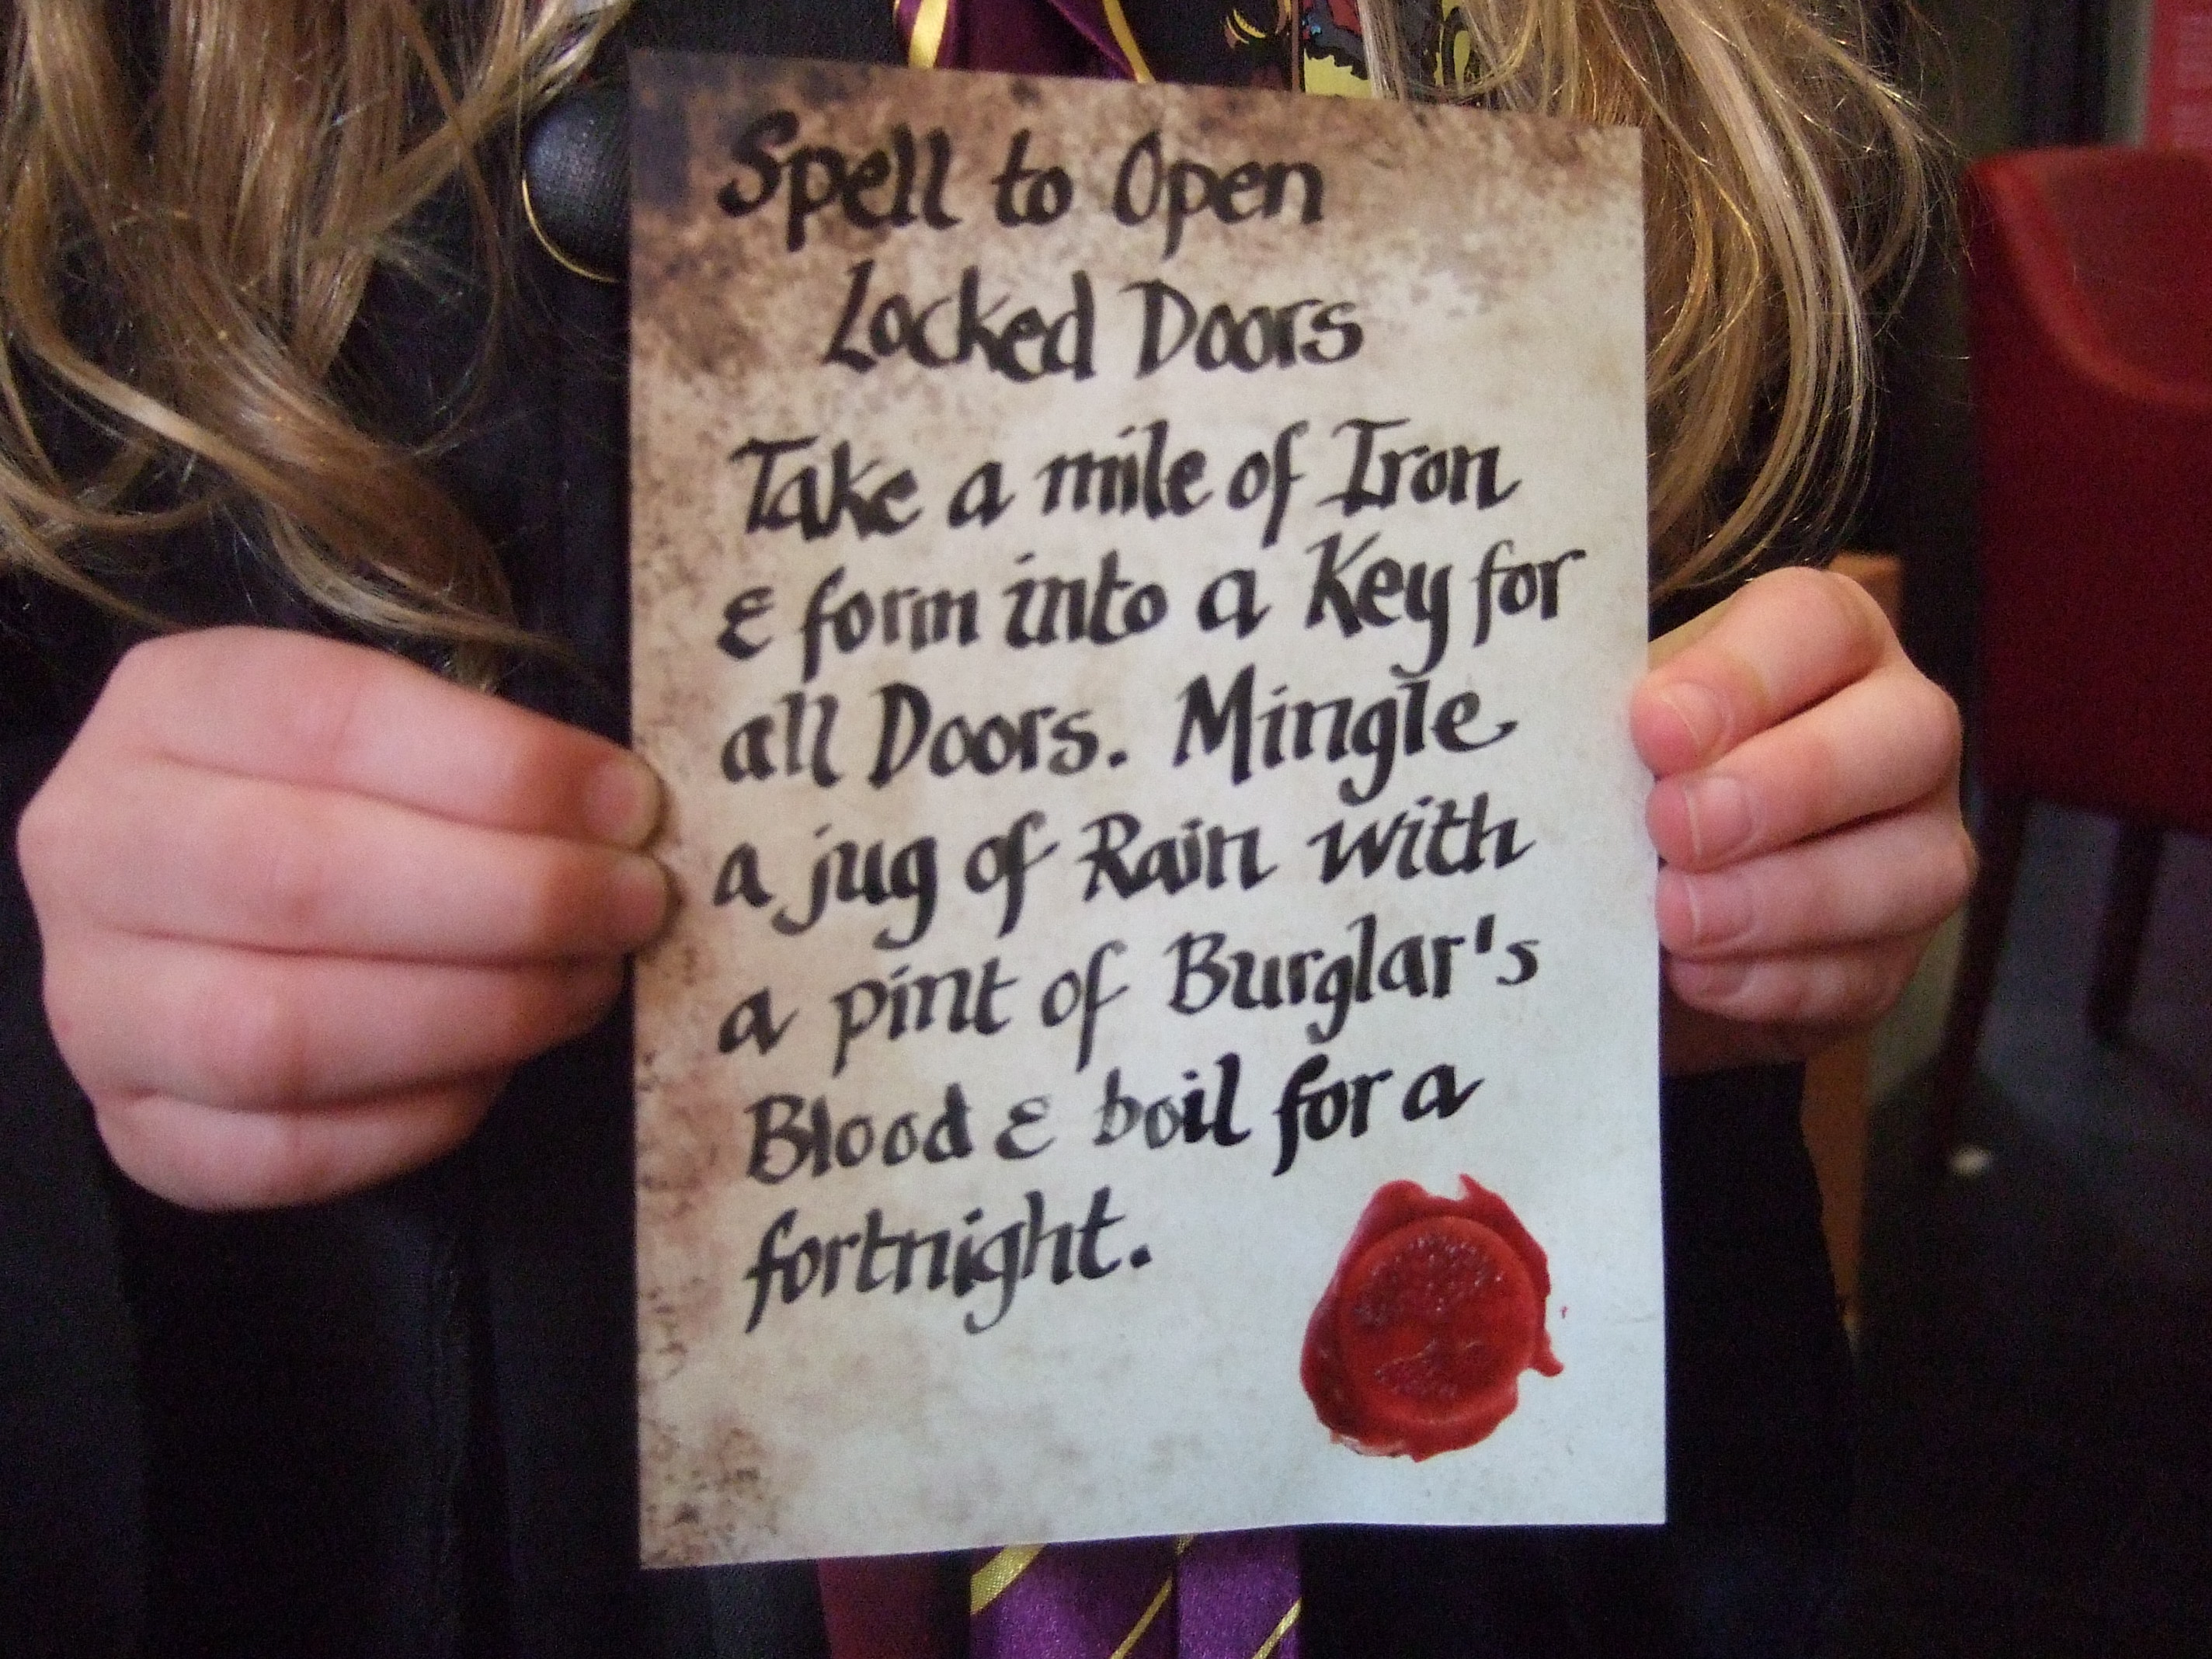 Spell to Open
Locked Doors
Take a mile of Iron
& form into a Key for
all Doors. Mingle
a jug of Rain with
a pint of Burglar's
Blood & boil for a
fortnight.